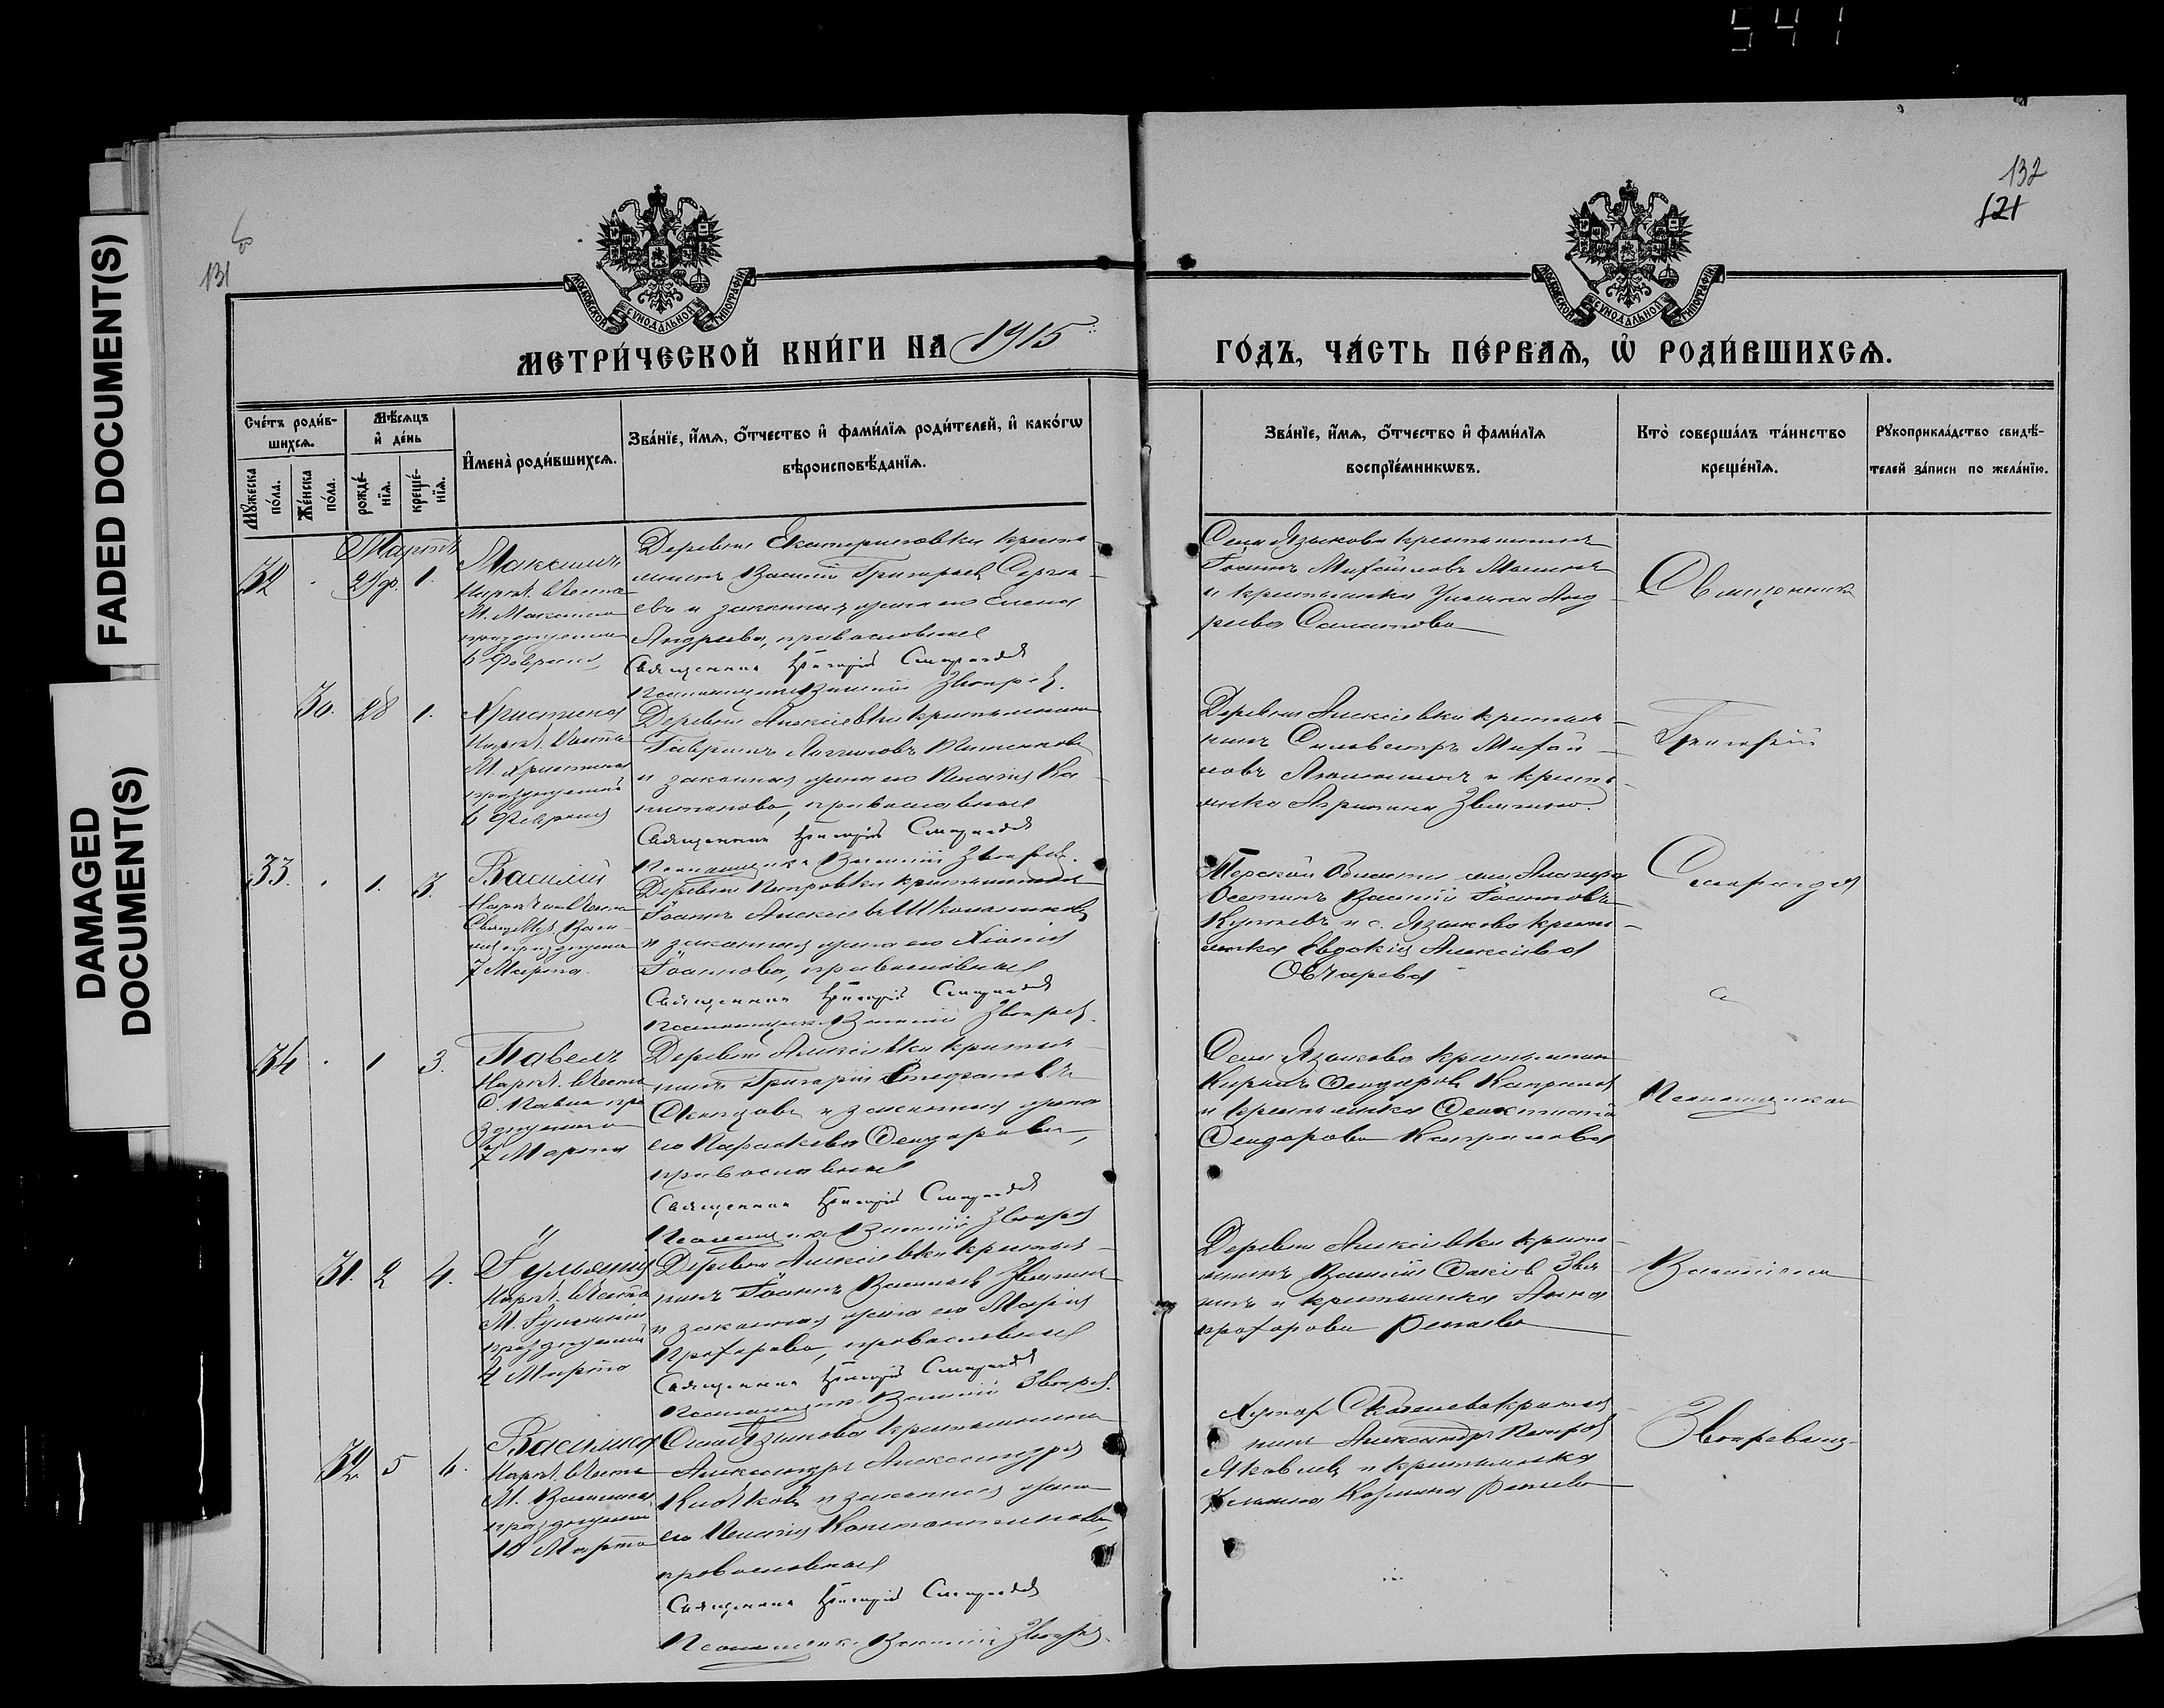 541
FADED DOCUMENT(S)
DAMAGED
DOCUMENT(S)
131
132
121
МОСКОВСКОЙ СѴНОДАЛЬНОЙ ТИПОГРАФІИ
МОСКОВСКОЙ СѴНОДАЛЬНОЙ ТИПОГРАФІИ
МЕТРИ́ЧЕСКОЙ КНИ́ГИ НА 1915 ГО́ДЪ, ЧА́СТЬ ПЕ́РВАѦ, Ѡ҆ РОДИ́ВШИХСѦ.
Сче́тъ роди́в-
шихсѧ.
Мꙋ́жеска
по́ла.
Же́нска
по́ла.
Мѣ́сѧцъ
и҆ де́нь
рожде́-
нїѧ.
креще́-
нїѧ.
И҆мена̀ роди́вшихсѧ.
Зва́нїе, и҆́мѧ, ѻ҆́тчество и҆ фами́лїѧ роди́телей, и҆ како́гѡ
вѣроисповѣ́данїѧ.
Зва́нїе, и҆́мѧ, ѻ҆́тчество и҆ фами́лїѧ
воспрїе́мникѡвъ.
Кто̀ соверша́лъ та́инство
креще́нїѧ.
Рꙋкоприкла́дство свидѣ́-
телей за́писи по жела́нїю.
Мартъ
32 . 27ф. 1.
Максимъ
Нареч. въ честь
М. Максима
празднуемаго
6 Февраля
Деревни Екатериновки кресть
янинъ Василій Григорьевъ Сергѣ-
евъ и законная жена его Елена
Андреева, православные
Священникъ Григорій Смарагдовъ
Псаломщикъ Василій Звѣревъ.
Села Языкова крестьянинъ
Іоаннъ Михайловъ
и крестьянка Ульяна Анд
реева
Священникъ
30. 28 1.
Христина
Нареч. въ честь
М. Христины
празднуемой
6 Февраля
Деревни Алексѣевки крестьянинъ
Гавріилъ
и законная жена его Пелагія Ка-
питонова, православные
Священникъ Григорій Смарагдовъ
Псаломщикъ Василій Звѣревъ.
Деревни Алексѣевки крестья-
нинъ Сильвестръ Михай-
ловъ и кресть-
янка Агрипина
Григорій
33. . 1. 3.
Василій
Нареч. въ честь
Свящ. Муч. Васи-
лія празднуема
7 Марта.
Деревни Петровки крестьянинъ
Іоаннъ Алексѣевъ Школьниковъ
и законная жена его Хіонія
Іоаннова, православные
Священникъ Григорій Смарагдовъ
Псаломщикъ Василій Звѣревъ.
Терской Области
Осетинъ Василій Іоанновъ
и с. Языкова кресть-
янка Евдокія Алексѣева
Овчарева
Смарагдовъ
34 . 1 3.
Павелъ
Нареч. въ честь
С. Павла пра
зднуемаго
7 Марта
Деревни Алексѣевки крестья-
нинъ Григорій Стефановъ
и законная жена
его Параскева Ѳеодорова,
православные
Священникъ Григорій Смарагдовъ
Псаломщикъ Василій Звѣревъ
Села Языкова крестьянинъ
Кириллъ Ѳеодоровъ
и крестьянка Ѳеоктиста
Ѳеодорова
Псаломщикъ
31. 2 4.
Іуліанія
Нареч. въ честь
М. Іуліаніи
празднуемой
4 Марта
Деревни Алексѣевки крестья-
нинъ Іоаннъ Васильевъ
и законная жена его Марія
Прохорова, православные
Священникъ Григорій Смарагдовъ
Псаломщикъ Василій Звѣревъ.
Деревни Алексѣевки кресть-
янинъ Василій
и крестьянка Анна
Прохорова
Василій
32. 5 6.
Василиса
Нареч. въ честь
М. Василисы
празднуемой
10 Марта
Села Языкова крестьянинъ
Александръ Александровъ
и законная жена
его Пелагія Константинова,
православные
Священникъ Григорій Смарагдовъ
Псаломщикъ Василій Звѣревъ.
Хутора крестья
нинъ Александръ Петровъ
Яковлевъ и крестьянка
Звѣревъ